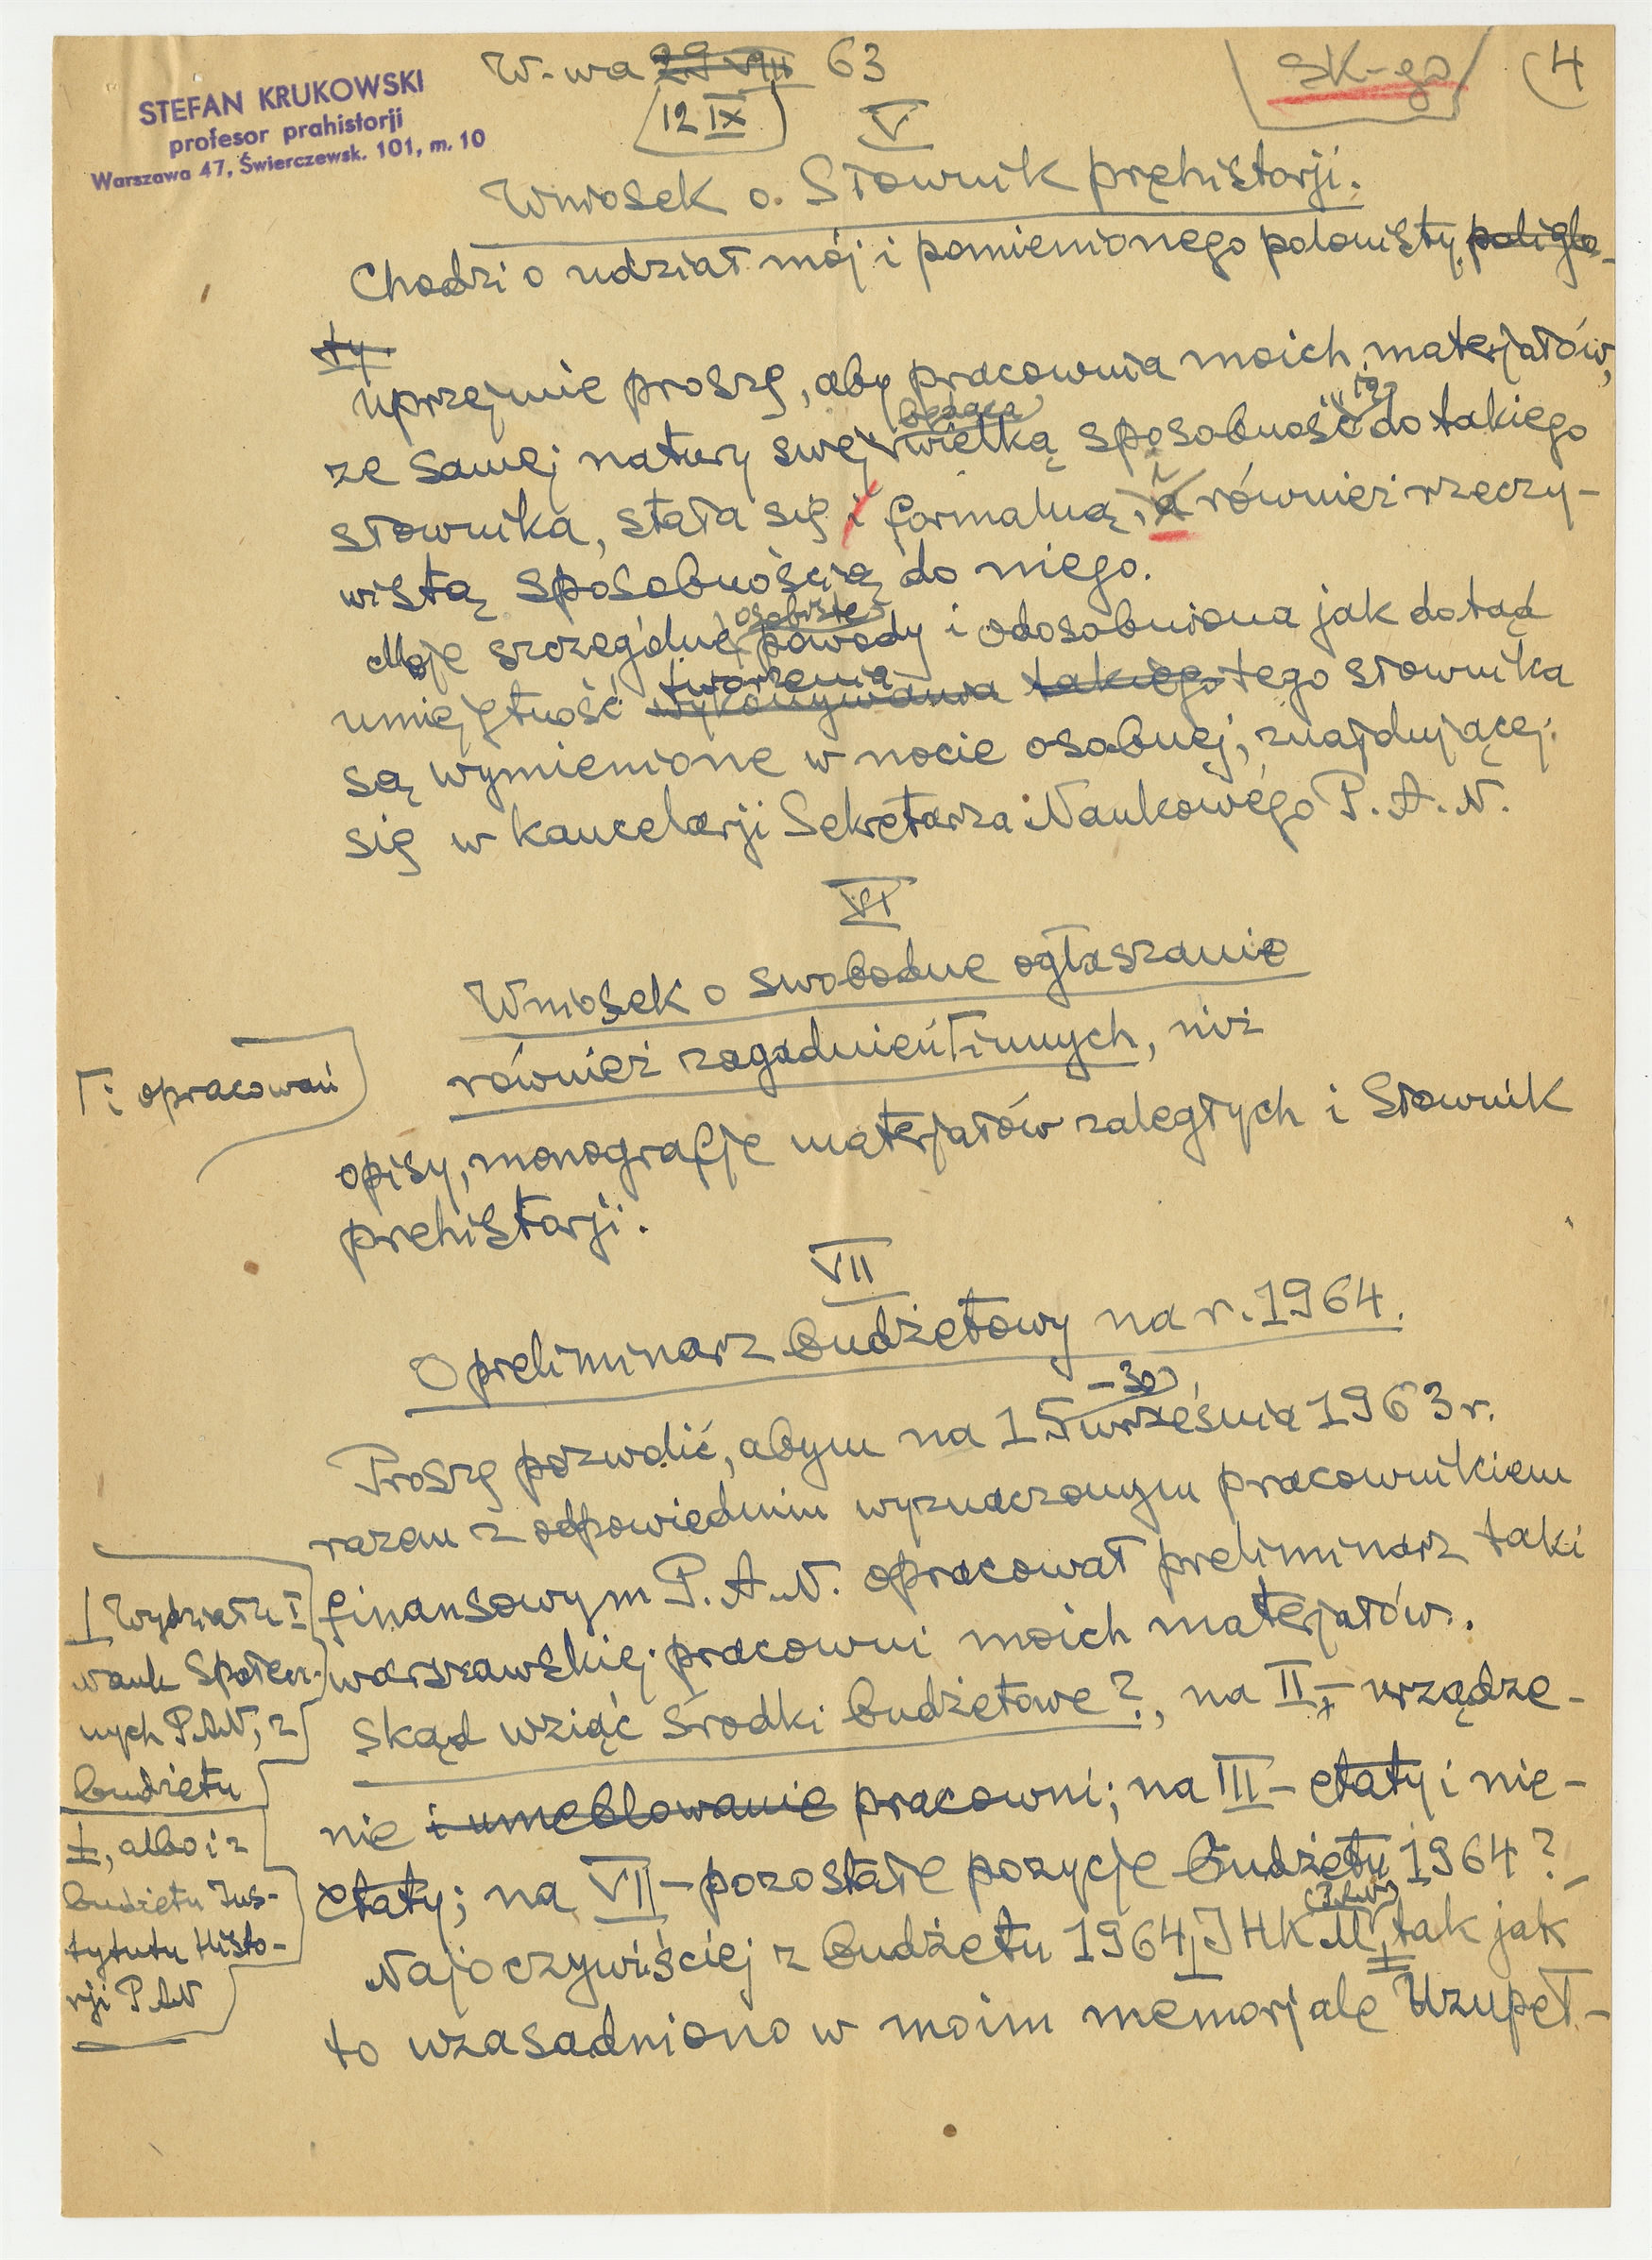 STEFAN KRUKOWSKI
profesor prahistorji
Warszawa 47, Świerczewsk. 101, m. 10
W-wa 29 VIII 63
12 IX
SK-go
4
V
Wniosek o Słownik prehistorji.
Chodzi o udział mój i pomienionego polonisty poliglo-
ty.
Uprzejmie proszę, aby pracownia moich materjałów,
będąca
ze samej natury swej wielką sposobnością do takiego
słownika, stała się i formalną, i a również rzeczy-
wistą sposobnością do niego.
osobiste
Moje szczególne powody i odosobniona jak dotąd
tworzenia
umiejętność wykonywania takiego tego słownika
są wymienione w nocie osobnej, znajdującej
się w kancelarji Sekretarza Naukowego P.A.N.
VI
Wniosek o swobodne ogłaszanie
również zagadnień Γ innych, niż
Γ i opracowań
opisy, monografje materjałów zaległych i Słownik
prehistorji.
VII
O preliminarz budżetowy na r. 1964.
-30
Proszę pozwolić, abym na 15 września 1963 r.
razem z odpowiednim wyznaczonym pracownikiem
finansowym P.A.N. opracował preliminarz taki
warszawskiej pracowni moich materjałów.
Skąd wziąć środki budżetowe?, na II - urządze-
nie i umeblowanie pracowni; na III - etaty i nie-
etaty; na VII - pozostałe pozycje budżetu 1964?
Najoczywiściej z budżetu 1964 IHKM tak jak
to uzasadniono w moim memorjale Uzupeł-
Wydziału I
nauk społecz-
nych PAN, z
budżetu
albo i z
budżetu Ins-
tytutu Histo-
rji PAN